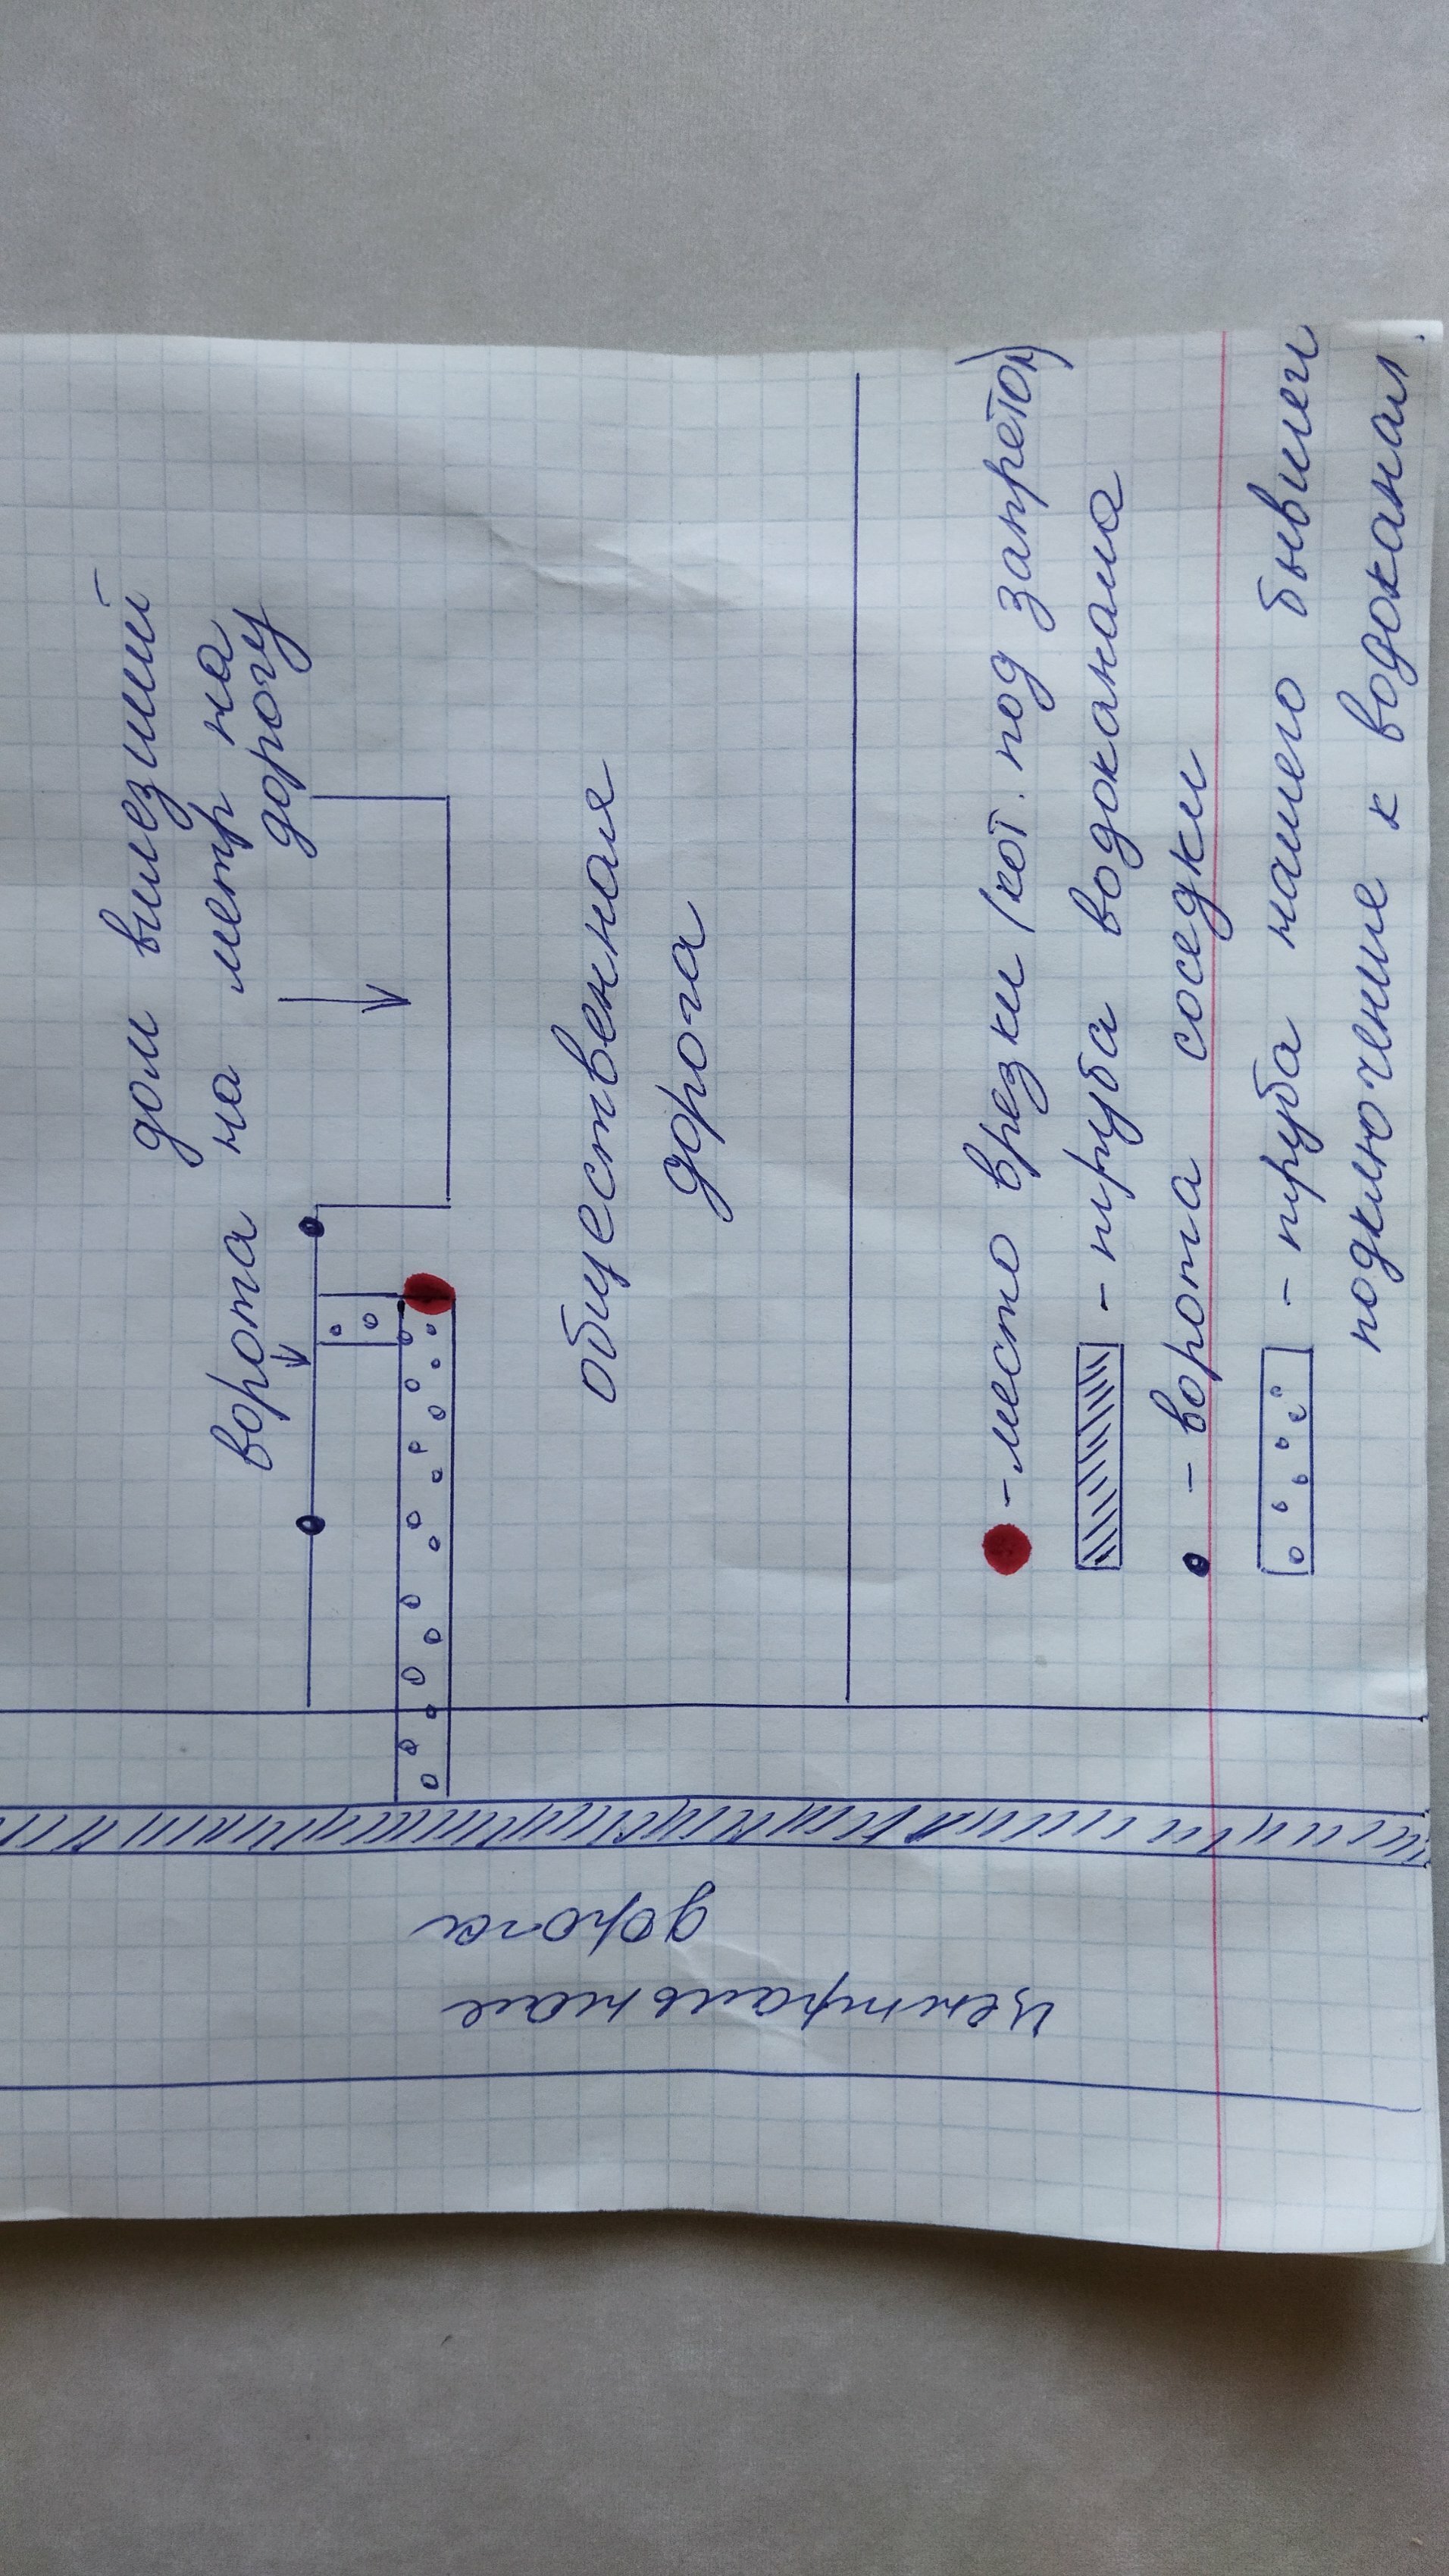 дом вылезший
на метр на
дорогу
ворота
общественная
дорога
- место врезки (кот. под запретом)
- труба водоканала
- ворота соседки
- труба нашего бывшего
подключение к водоканал.
дорога
центральная